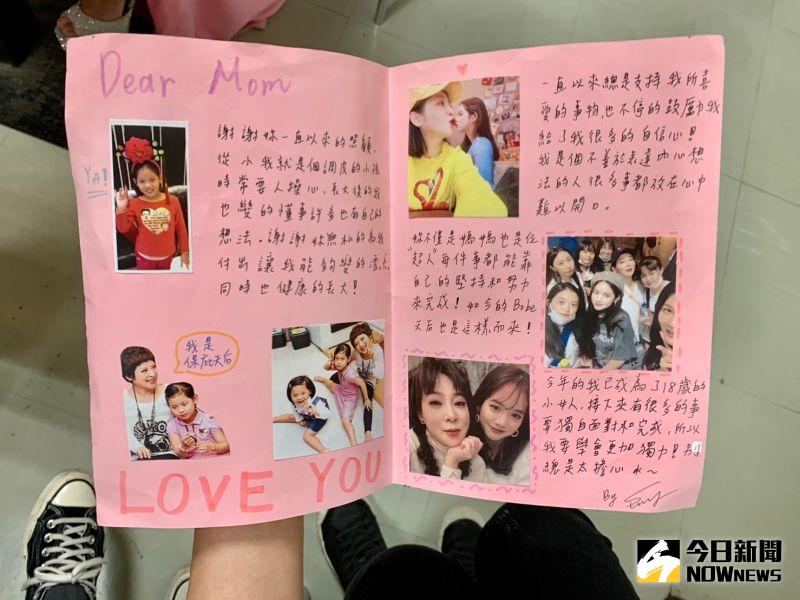 Dear Mom
YA!
謝謝妳一直以來的照顧,
從小我就是個調皮的小孩
時常要人操心,長大後的我
也變的懂事許多也有自己的
想法。謝謝妳無私的為我
付出讓我能夠變的漂亮
同時也健康的長大!
我是
保庇天后
LOVE YOU
一直以來總是支持我所喜
愛的事物,也不停的鼓勵我
給了我很多的自信心!
我是個不善於表達內心想
法的人很多事都放在心中
難以開口。
妳不僅是媽媽也是位
"超人"每件事都能靠
自己的堅持和努力
來完成!如今的Bobe
天后也是這樣而來!
今年的我已成為了18歲的
小女人,接下來有很多的事
要獨自面對和完成,所以
我要學會更加獨力!別
總是太擔心
By
今日新聞
NOWNEWS